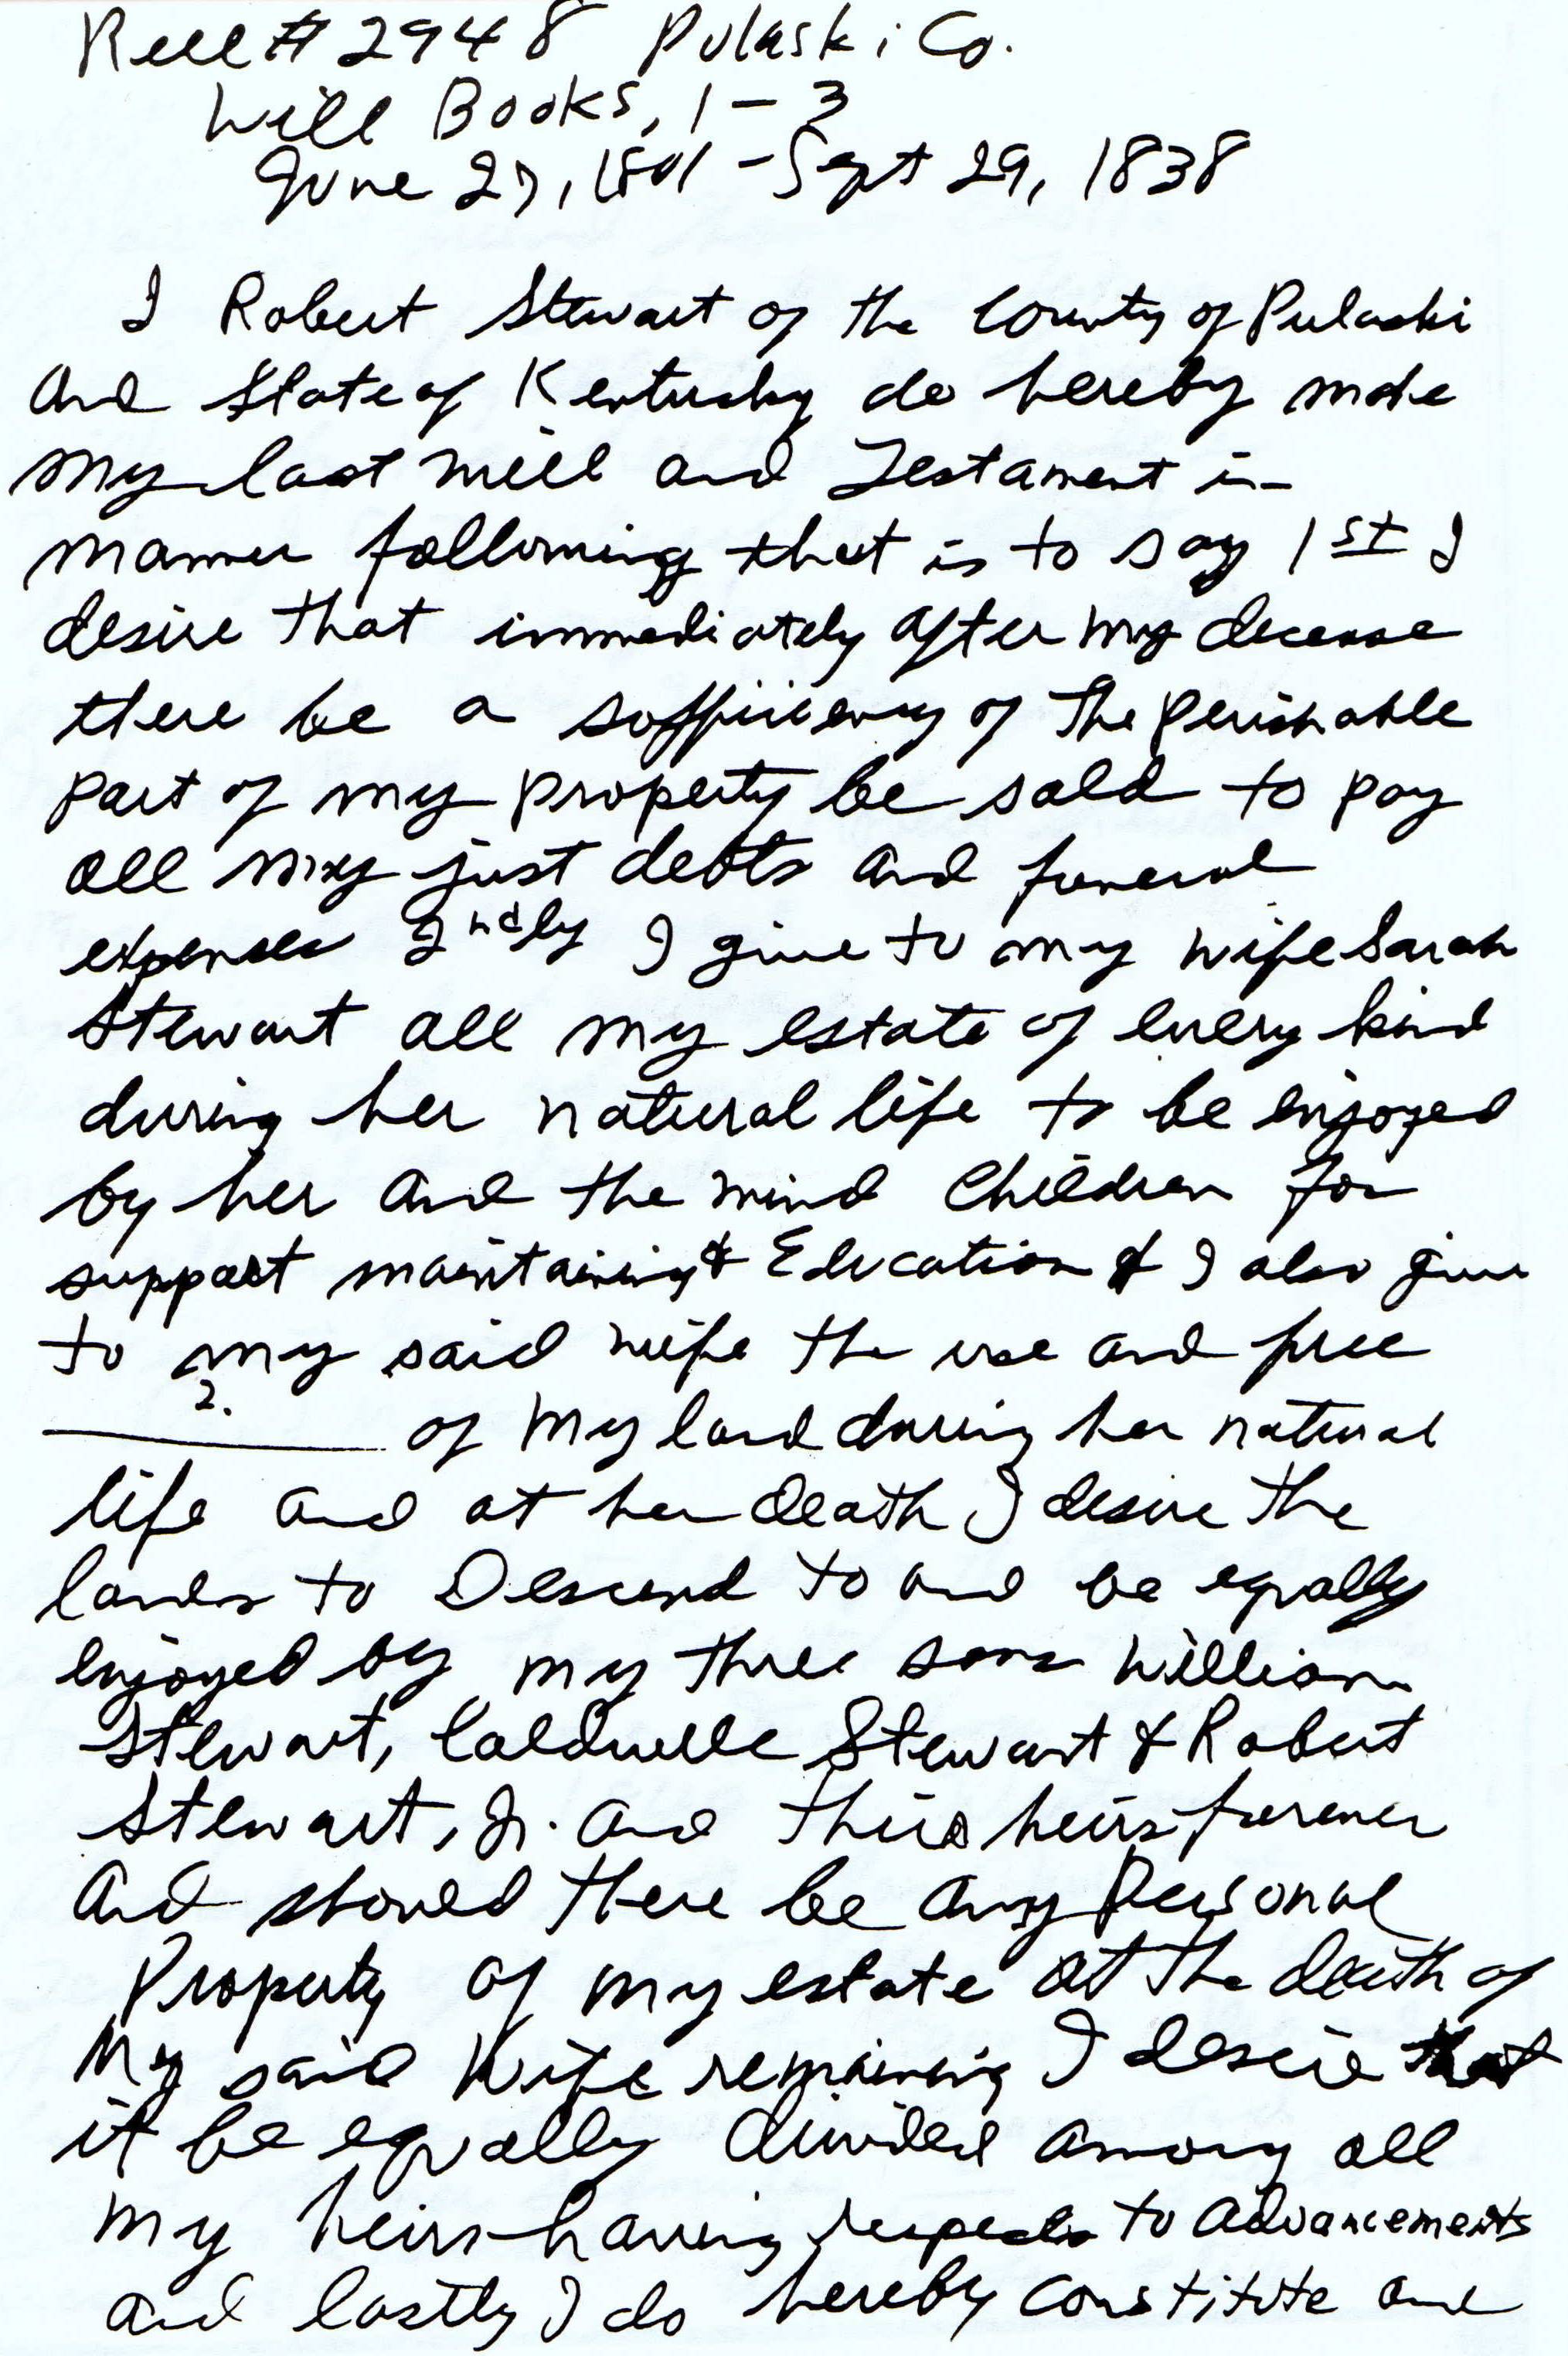 Reel # 2948 Pulaski Co.
Will Books, 1 - 3
June 27, 1801 - Sept 29, 1838
I Robert Stewart of the County of Pulaski
and State of Kentucky do hereby make
my last will and Testament in
manner following that is to say 1st I
desire that immediately after my decease
there be a sufficiency of the perishable
part of my property be sold to pay
all my just debts and funeral
expenses 2ndly I give to my wife Sarah
Stewart all my estate of every kind
during her natural life to be enjoyed
by her and the mind Children for
support maintaining & Education & I also give
to my said wife the use and free
? of my land during her natural
life and at her death I desire the
lands to Descend to and be equally
enjoyed by my three sons William
Stewart, Caldwelle Stewart & Robert
Stewart, Jr. and their heirs forever
and should there be any Personal
Property of my estate at the death of
my said Wife remaining I desire that
it be equally divided among all
my heirs having respects to advancements
and lastly I do hereby constitite and